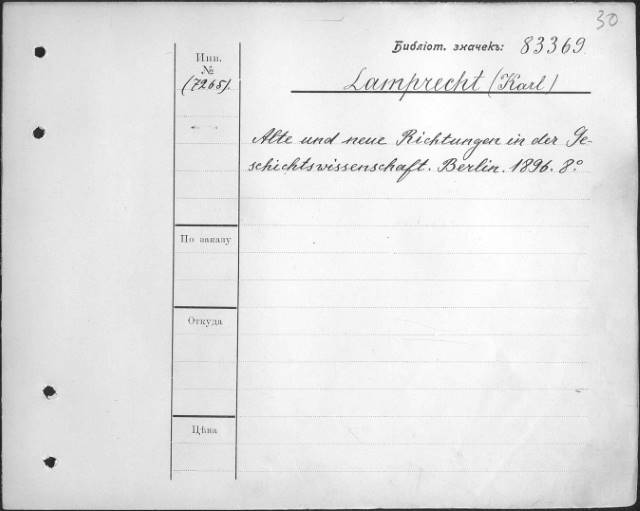 30
Библіот. значекъ: 83369.
Инв.
№
(7265).
Lamprecht (Karl)
Alte und neue Richtungen in der Ge-
schichtswissenschaft. Berlin. 1896. 8°.
По заказу
Откуда
Цѣна